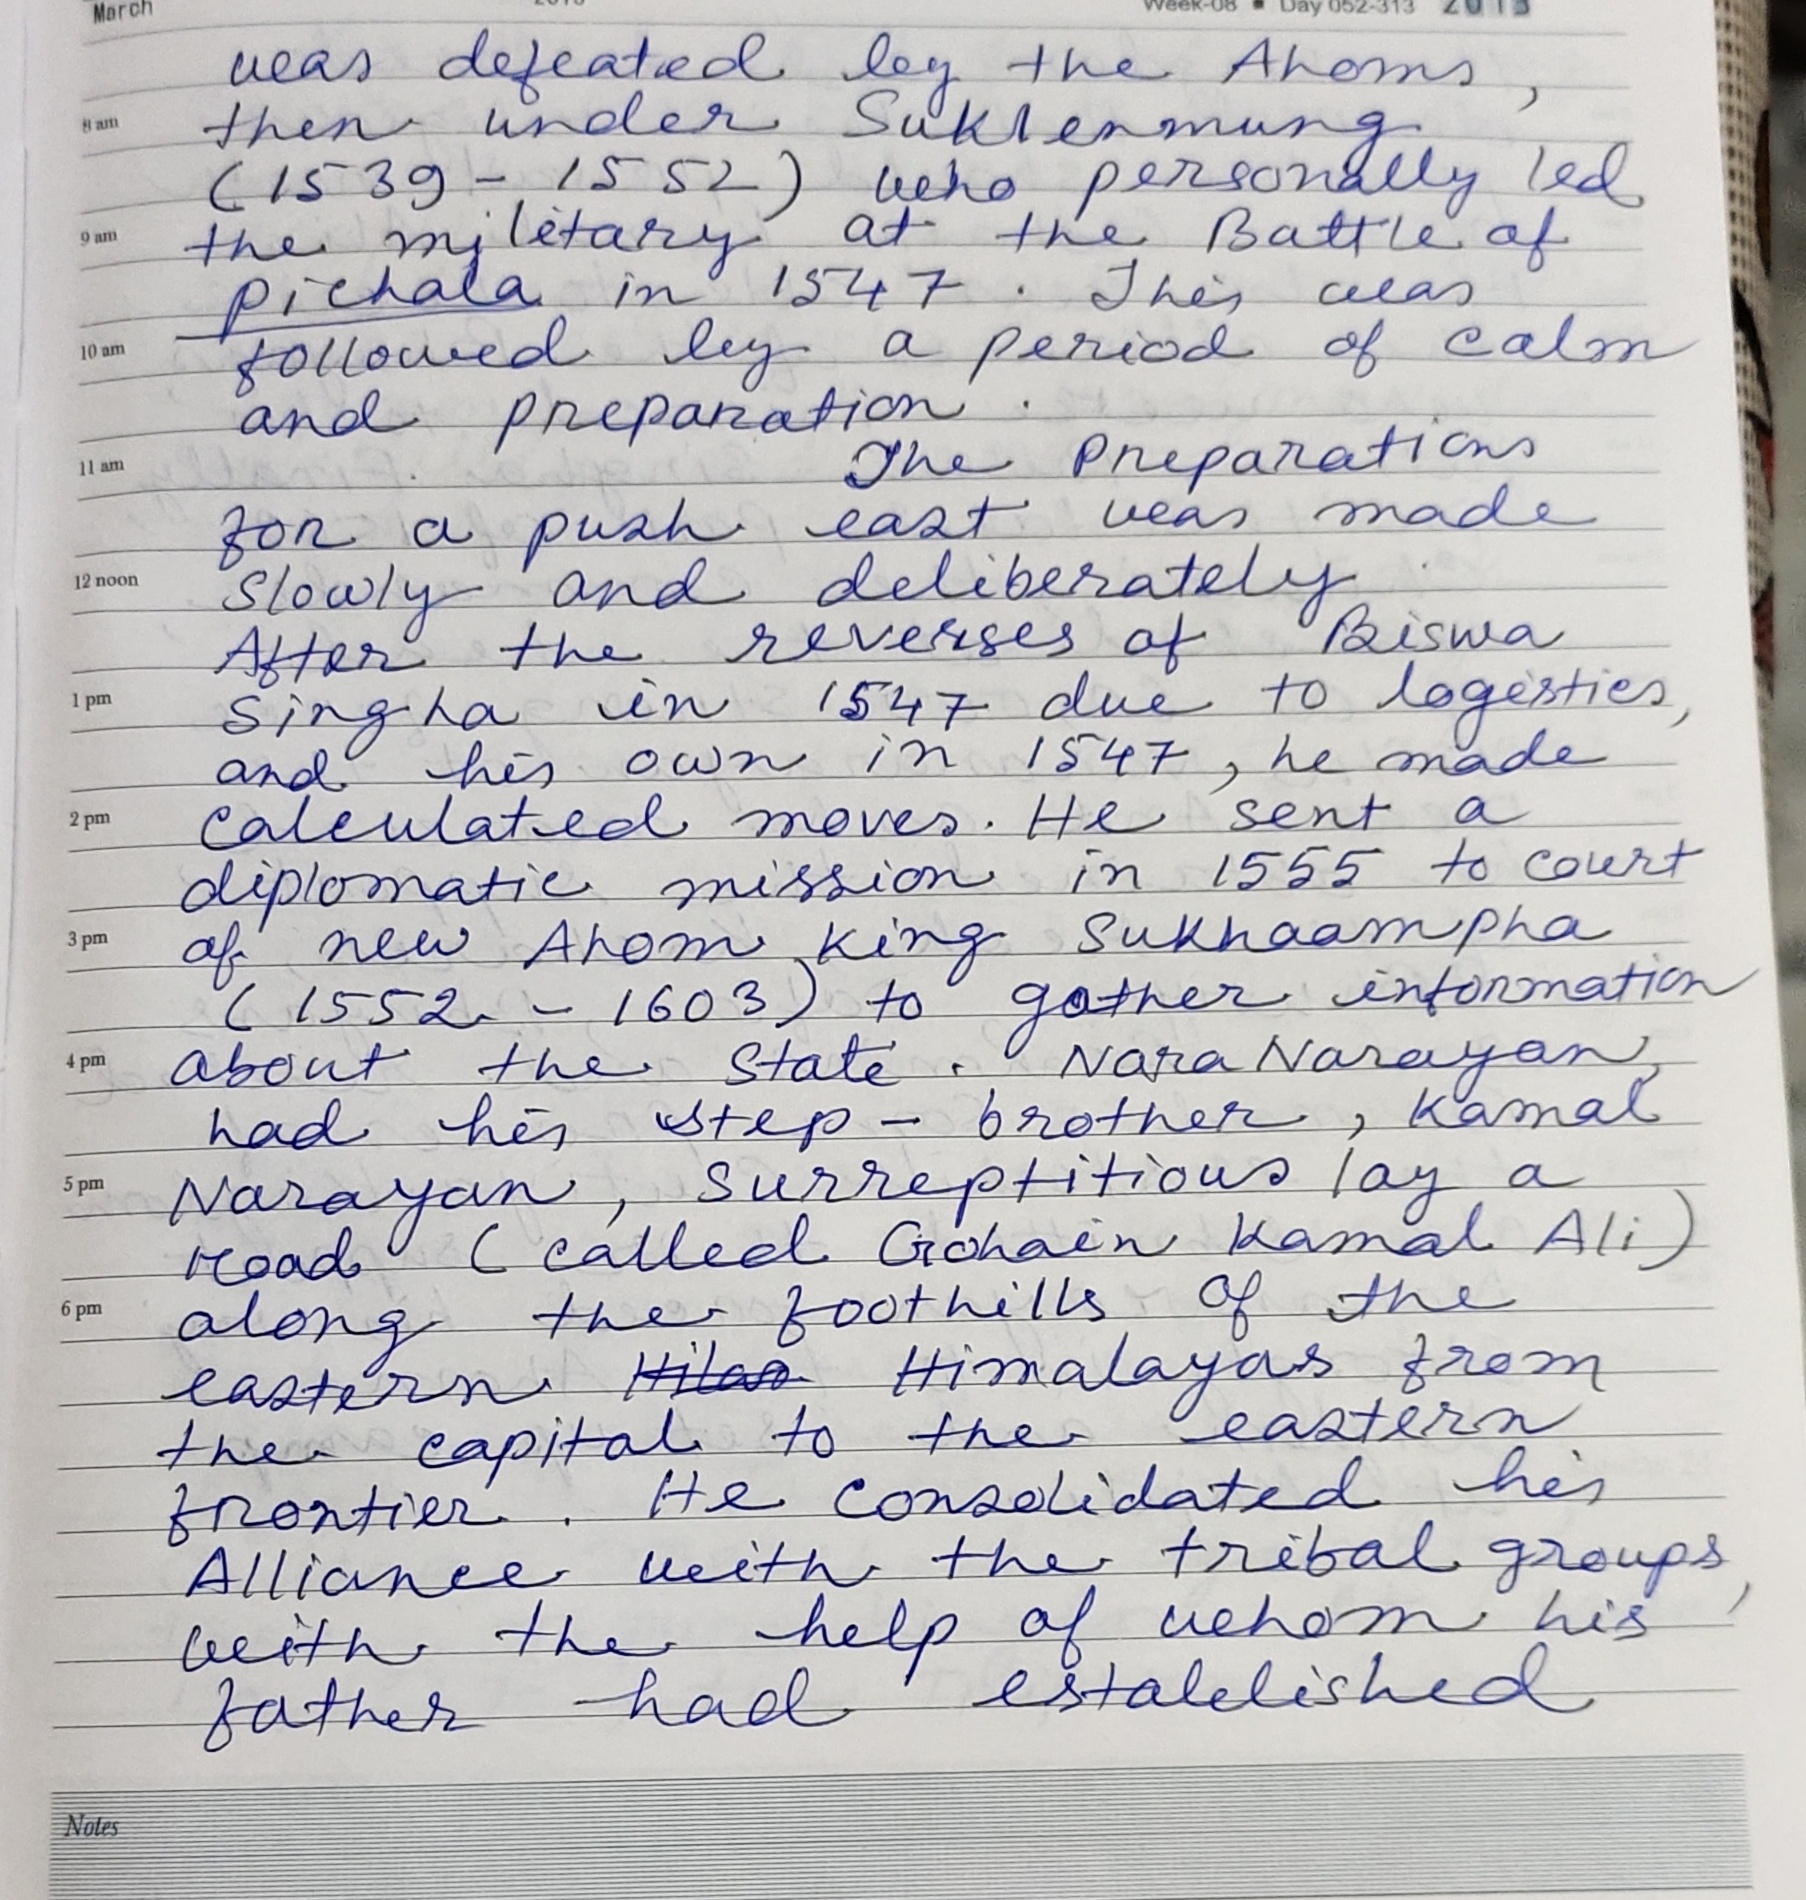 March Week-08 ▪ Day 052-313 2013
was defeated by the Ahoms,
8 am then under Suklenmung
(1539 - 1552) who personally led
9 am the military at the Battle of
pichala in 1547. This was
10 am followed by a period of calm
and preparation.
11 am The Preparations
for a push east was made
12 noon slowly and deliberately
After the reverses of Biswa
1 pm Singha in 1547 due to logistics,
and his own in 1547, he made
2 pm calculated moves. He sent a
diplomatic mission in 1555 to court
3 pm of new Ahom King Sukhaampha
(1552 - 1603) to gather information
4 pm about the State. Nara Narayan,
had his step-brother, Kamal
5 pm Narayan, Surreptitious lay a
road (called Gohain Kamal Ali)
6 pm along the foothills of the
eastern Himalayas from
the capital to the eastern
frontier. He consolidated his
Alliance with the tribal groups,
with the help of whom his
father had established
Notes